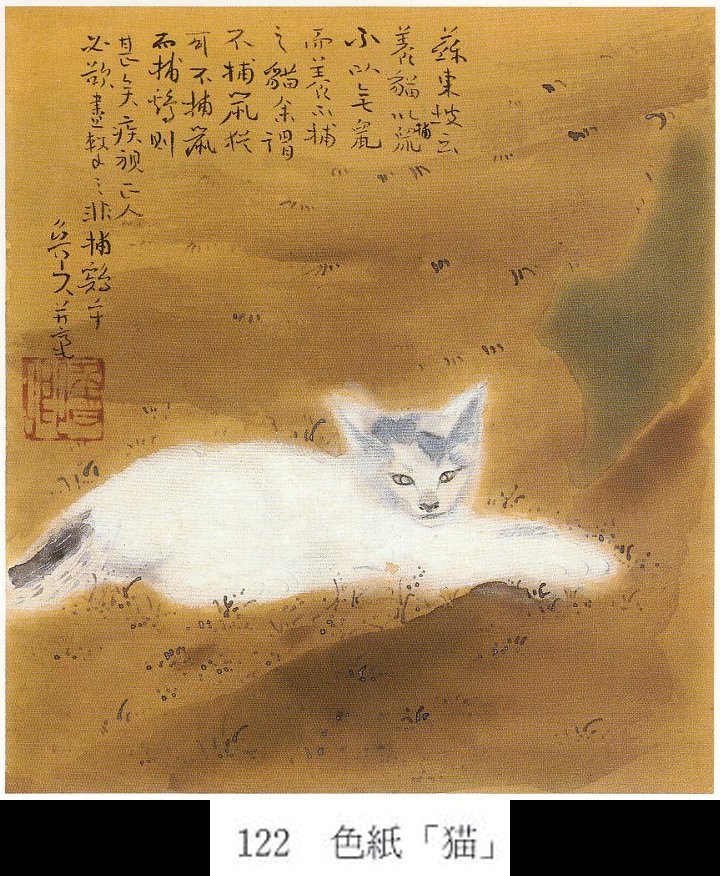 蘇東坡云
養貓以捕鼠
不以無鼠
而養不捕
之貓余謂
不捕鼠猶
可不捕鼠
而捕鷄則
甚矣疾視正人
必欲盡擊之非捕鷄乎
122 色紙「猫」